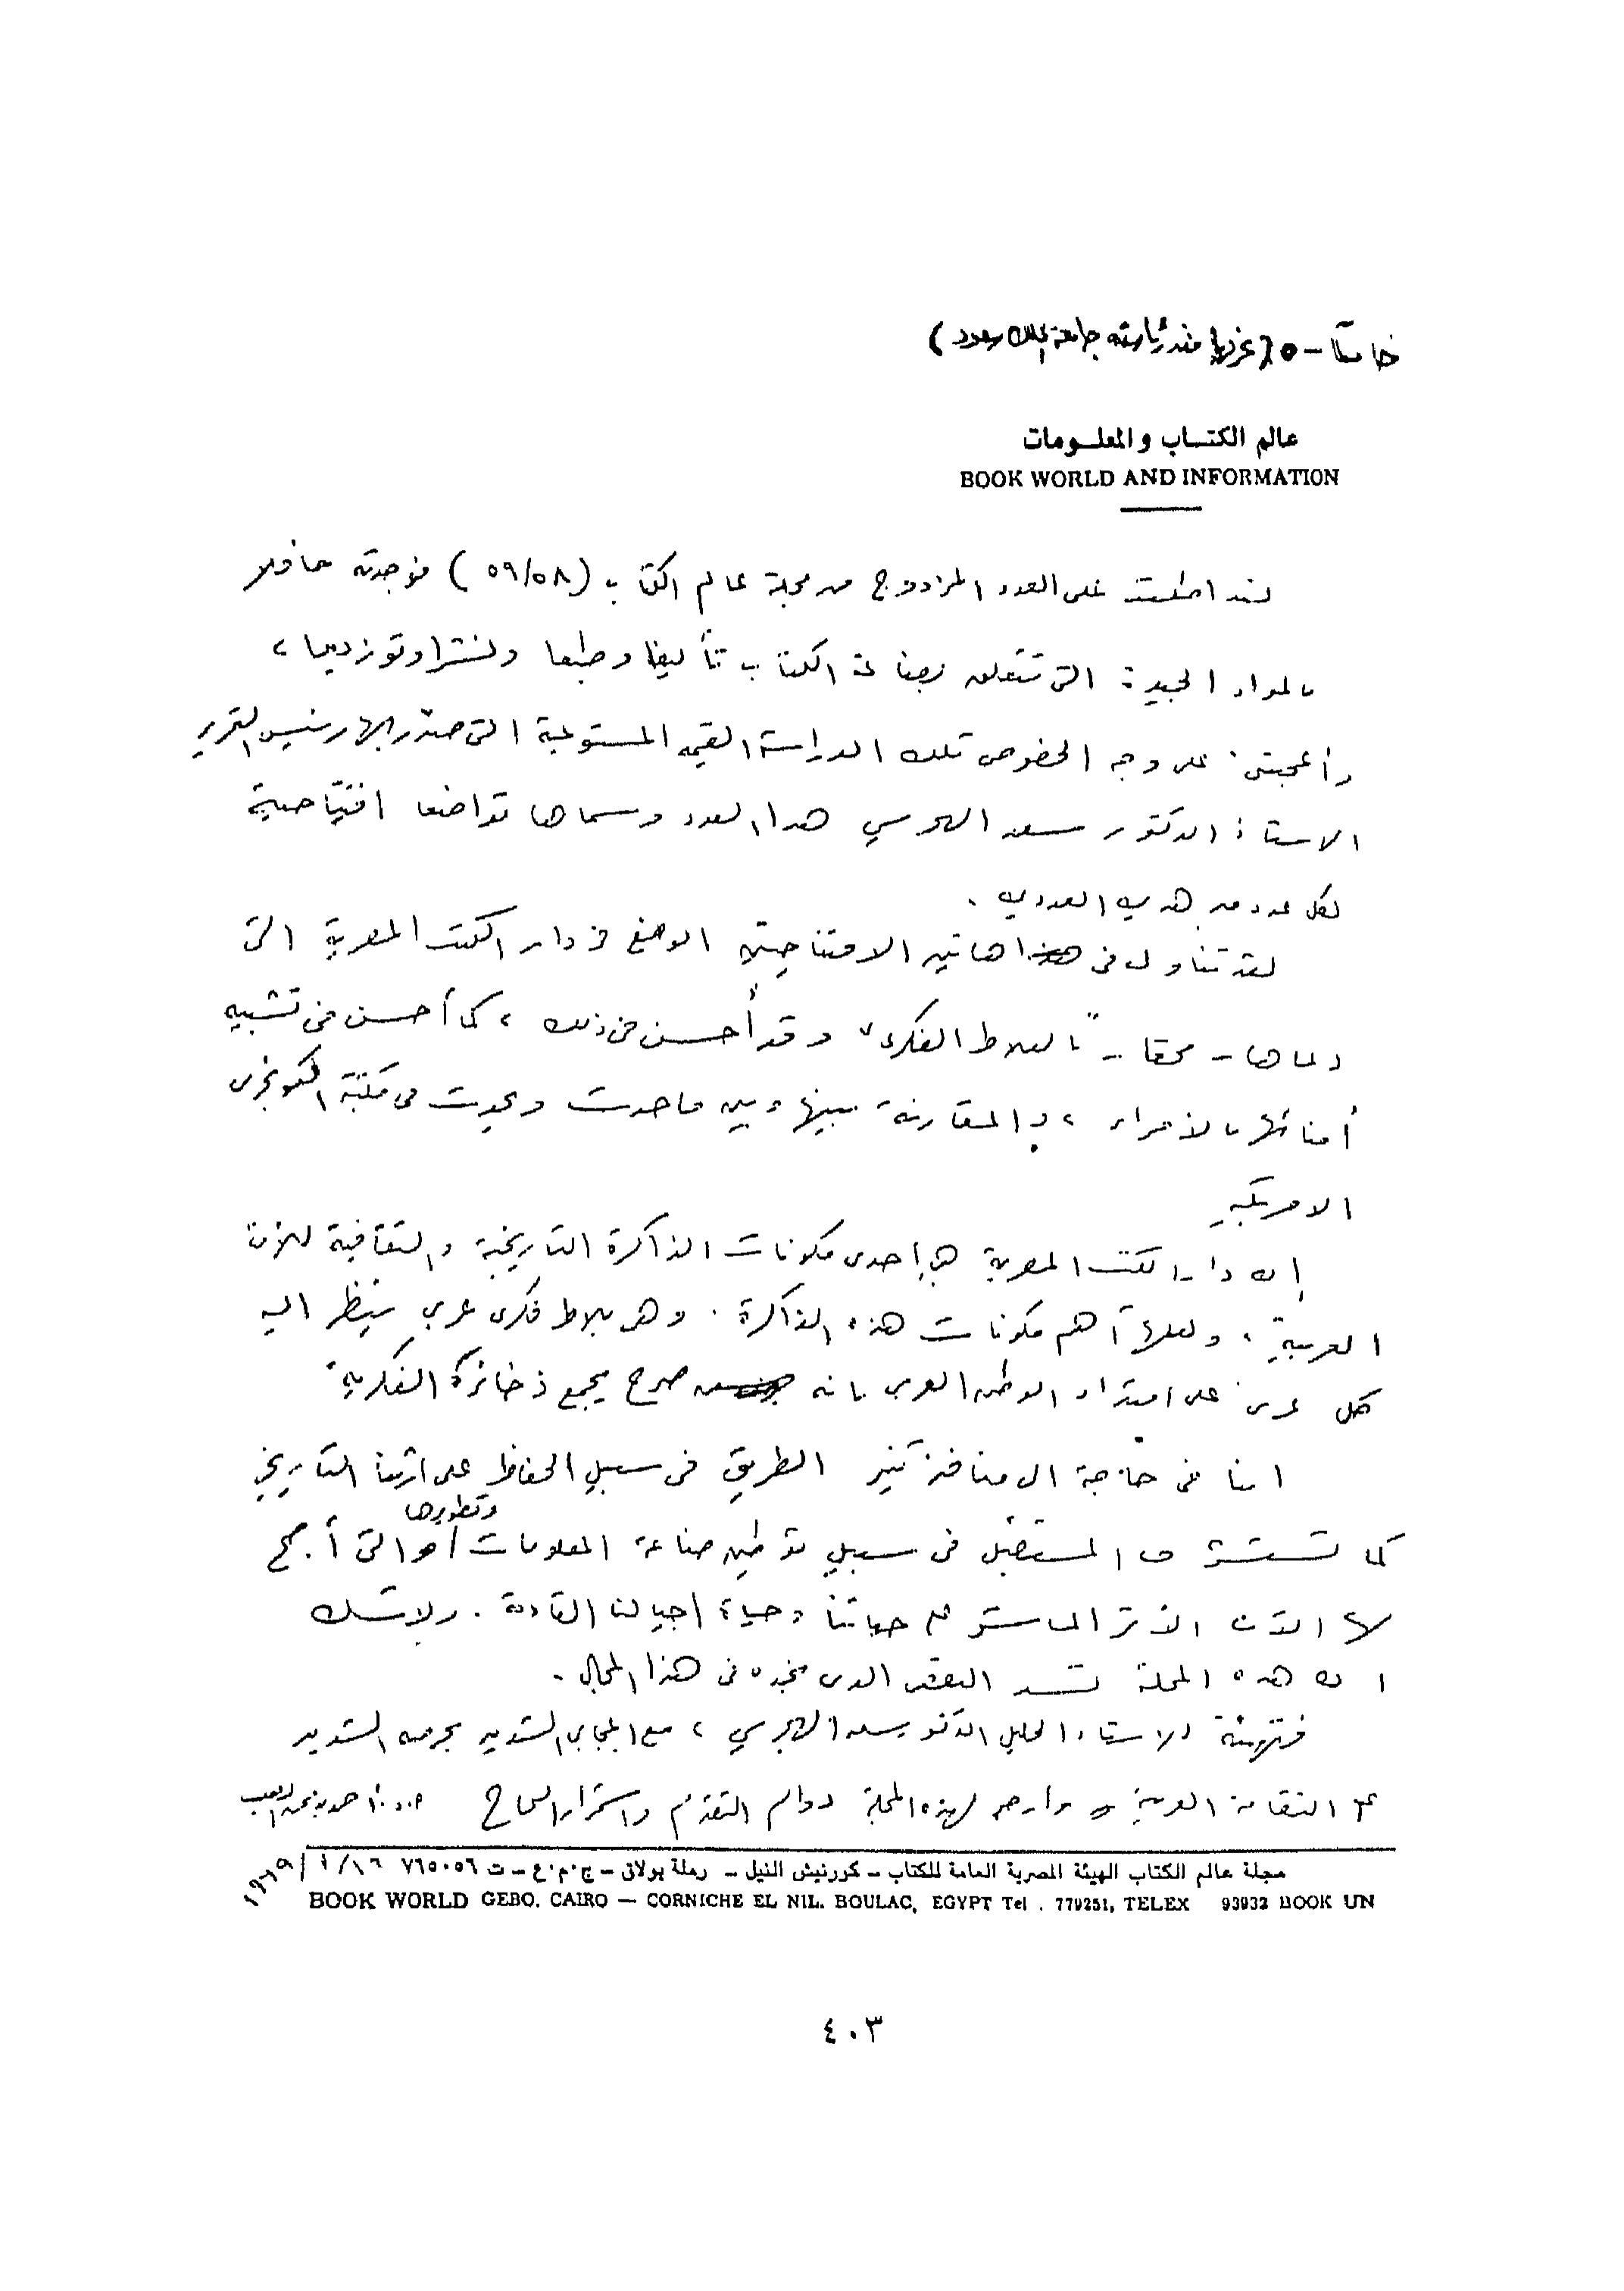 خامسًا - ٥ ( جامعة الملك سعود )
عالم الكتـــاب والمعلـــومات
BOOK WORLD AND INFORMATION
لقد اطلعت على العدد المزدوج من مجلة عالم الكتاب (٥٩/٥٨) فوجدته حافلا
بالمواد الجيدة التى تتعلق بصناعة الكتاب تأليفا وطبعا ونشرا وتوزيعا ،
وأعجبنى على وجه الخصوص تلك الدراسة القيمة المستوعبة التى صدر بها رئيس التحرير
الاستاذ الدكتور سعد الهجرسي هذا العدد وسماها تواضعا افتتاحية
لكل عدد من هذين العددين .
لقد تناول فى هاتين الافتتاحيتين الوضع فى دار الكتب المصرية التى
دعاها - محقا - "بالبلاط الفكرى" وقد أحسن فى ذلك ، كما أحسن فى تشبيه
أمنائها بالأمراء ، والمقارنة بينها وبين ما حدث ويحدث فى مكتبة الكونجرس
الامريكية
إن دار الكتب المصرية هى إحدى مكونات الذاكرة التاريخية والثقافية للأمة
العربية ، ولعلها أهم مكونات هذه الذاكرة . وهى بلاط فكرى عربي ينظر اليه
كل عربى على امتداد الوطن العربى بانه صرح يجمع ذخائره الفكرية
اننا فى حاجة الى منافذ تنير الطريق فى سبيل الحفاظ على ارثنا التاريخى
كما تستشرف المستقبل فى سبيل توطين صناعة المعلومات وتطويرها والتى أصبح
لها الآن الأثر الملموس على حياتنا وحياة اجيالنا القادمة . ولا شك
ان هذه المجلة تسد النقص الذى نجده فى هذا المجال .
فتهنئة للاستاذ الجليل الدكتور سعد الهجرسي ، مع اعجابى الشديد بحرصه الشديد
على الثقافة العربية وارجو لهذه المجلة دوام التقدم واستمرار النجاح
مجلة عالم الكتاب الهيئة المصرية العامة للكتاب - كورنيش النيل - رملة بولاق - ج.م.ع - ت ٧٦٥٠٥٦
BOOK WORLD GEBO. CAIRO — CORNICHE EL NIL. BOULAC, EGYPT Tel . 779251, TELEX 93932 BOOK UN
٤٠٣